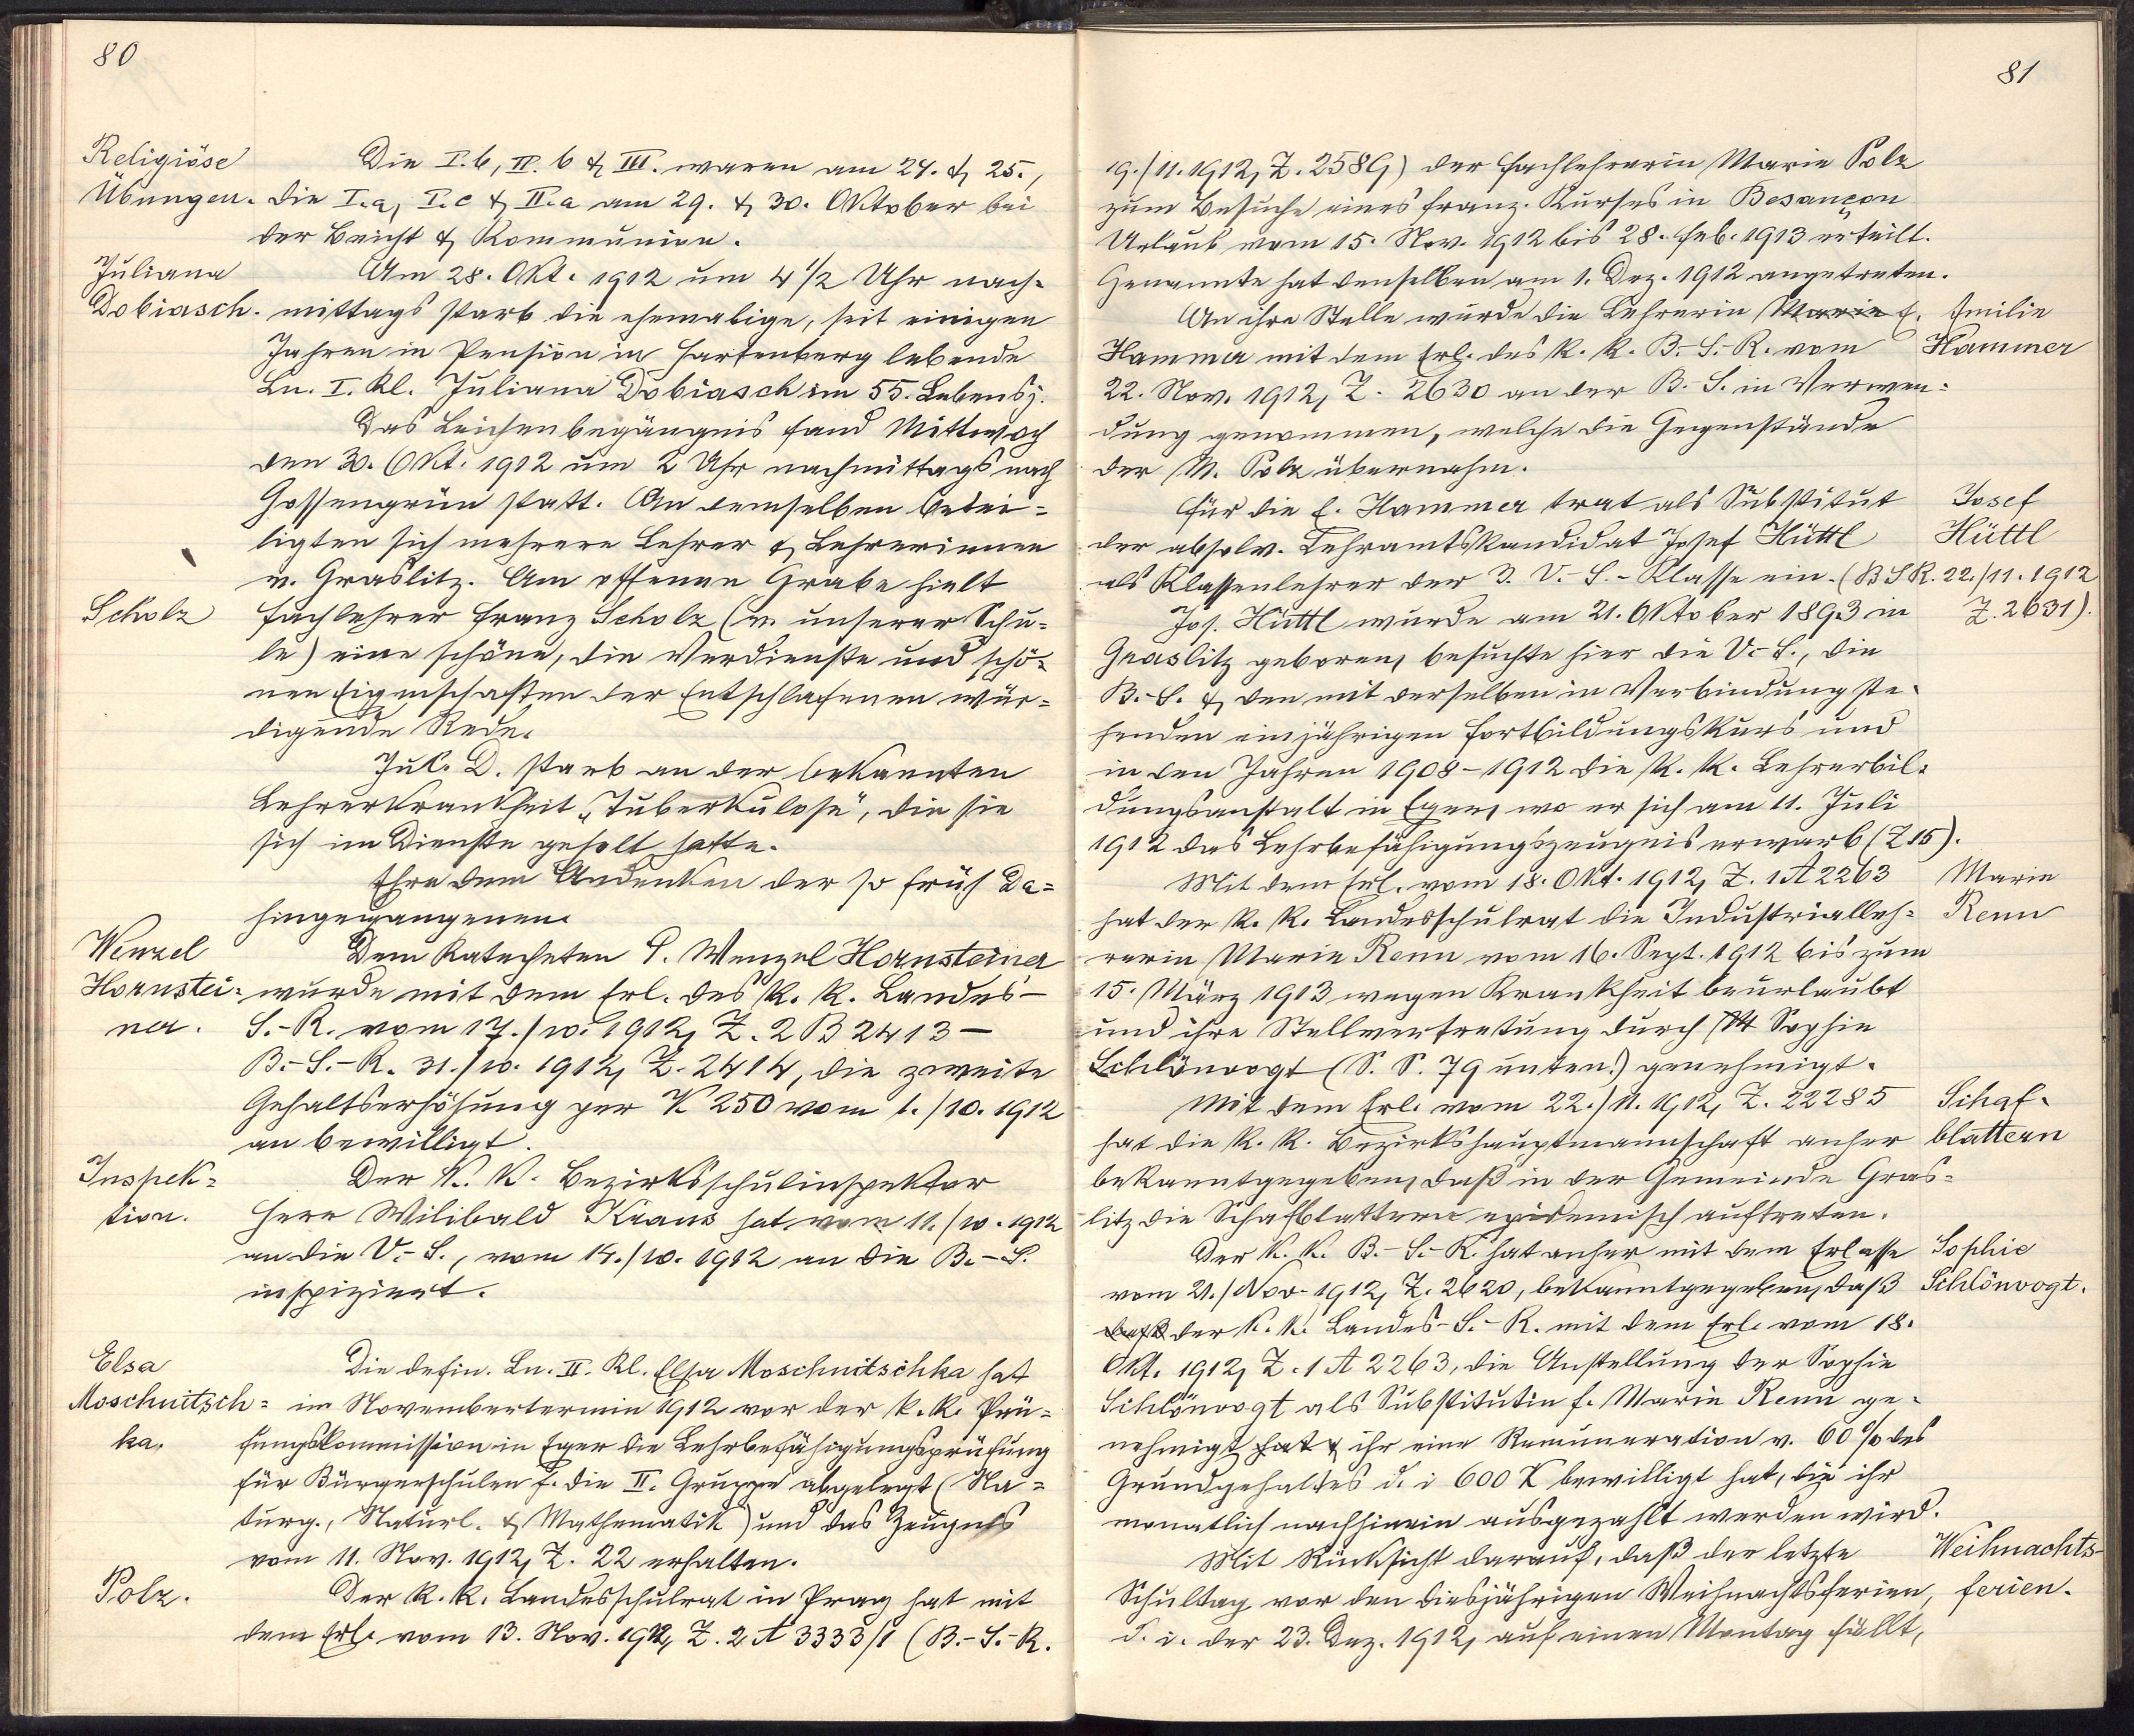 80
Religiöse
Übungen.
Die I.b, II. b & III. waren am 24. & 25.,
die I.a, I.c & II.a am 29. & 30. Oktober bei
der Beicht & Kommunion.
Juliana
Dobiasch.
Am 28. Okt. 1912 um 4 1/2 Uhr nach-
mittags starb die ehemalige, seit einigen
Jahren in Pension in Hartenberg lebende
Ln. I. Kl. Juliana Dobiasch im 55. Lebensj.
Das Leichenbegängnis fand Mittwoch
den 30. Okt. 1912 um 2 Uhr nachmittags nach
Gossengrün statt. An demselben betei=
ligten sich mehrere Lehrer & Lehrerinnen
v. Graslitz. Am offenen Grabe hielt
Scholz
Fachlehrer Franz Scholz (v. unserer Schu=
le) eine schöne, die Verdienste und schö=
nen Eigenschaften der Entschlafenen wür=
digende Rede.
Jul. D. starb an der bekannten
Lehrerkrankheit „Tuberkulose", die sie
sich im Dienste geholt hatte.
Ehre dem Andenken der so früh Da=
hingegangenen.
Wenzel
Hornstei=
ner.
Dem Katecheten P. Wenzel Hornsteiner
wurde mit dem Erl. des k. k. Landes-
S.-R. vom 17./10. 1912, Z. 2 B 2413 -
B.-S.-R. 31./10. 1912, Z. 2414, die zweite
Gehaltserhöhung per K 250 vom 1./10. 1912
an bewilligt.
Inspek=
tion.
Der k. k. Bezirksschulinspektor
Herr Wilibald Kraus hat vom 11./10. 1912
an die V.-S., vom 14./10. 1912 an die B.-S.
inspiziert.
Elsa
Moschnitsch=
ka.
Die defin. Ln. II. Kl. Elsa Moschnitschka hat
im Novembertermin 1912 vor der k. k. Prü=
fungskommission in Eger die Lehrbefähigungsprüfung
für Bürgerschulen f. die II. Gruppe abgelegt (Na=
turg., Naturl. & Mathematik) und das Zeugnis
vom 11. Nov. 1912, Z. 22 erhalten.
Polz.
Der k. k. Landesschulrat in Prag hat mit
dem Erl. vom 13. Nov. 1912, Z. 2 A 3333/1 (B.-S.-R.
81
19./11. 1912, Z. 2589) der Fachlehrerin Marie Polz
zum Besuche eines franz. Kurses in Besançon
Urlaub vom 15. Nov. 1912 bis 28. Feb. 1913 erteilt.
Genannte hat denselben am 1. Dez. 1912 angetreten.
An ihre Stelle wurde die Lehrerin Marie E.
Hammer mit dem Erl. des k. k. B.-S.-R. vom
22. Nov. 1912, Z. 2630 an der B.-S. in Verwen=
dung genommen, welche die Gegenstände
der M. Polz übernahm.
Emilie
Hammer
Für die E. Hammer trat als Substitut
der absolv. Lehramtskandidat Josef Hüttl
als Klassenlehrer der 3. V.-S.-Klasse ein. (BSR. 22./11. 1912
Z. 2631).
Josef
Hüttl
Jos. Hüttl wurde am 21. Oktober 1893 in
Graslitz geboren, besuchte hier die V.-S., die
B.-S. & den mit derselben in Verbindung ste-
henden einjährigen Fortbildungskurs und
in den Jahren 1908-1912 die k. k. Lehrerbil-
dungsanstalt in Eger, wo er sich am 11. Juli
1912 das Lehrbefähigungszeugnis erwarb (Z 15).
Mit dem Erl. vom 18. Okt. 1912, Z. 1 A 2263
hat der k. k. Landesschulrat die Industrialleh=
rerin Marie Renn vom 16. Sept. 1912 bis zum
15. März 1913 wegen Krankheit beurlaubt
und ihre Stellvertretung durch M Sophie
Schlönvogt (S. S. 79 unten!) genehmigt.
Marie
Renn
Mit dem Erl. vom 22./11. 1912, Z. 22285
hat die k. k. Bezirkshauptmannschaft anher
bekanntgegeben, daß in der Gemeinde Gras=
litz die Schafblattern epidemisch auftreten.
Schaf-
blattern
Der k. k. B.-S.-R. hat anher mit dem Erlasse
vom 21./Nov. 1912, Z. 2620, bekanntgegeben, daß
daß der k. k. Landes-S.-R. mit dem Erl. vom 18.
Okt. 1912, Z. 1 A 2263, die Anstellung der Sophie
Schlönvogt als Substitutin f. Marie Renn ge-
nehmigt hat & ihr eine Remuneration v. 60 % des
Grundgehaltes d. i 600 K bewilligt hat, die ihr
monatlich nachhinein ausgezahlt werden wird.
Sophie
Schlönvogt.
Mit Rücksicht darauf, daß der letzte
Schultag vor den diesjährigen Weihnachtsferien,
d. i. der 23. Dez. 1912, auf einen Montag fällt,
Weihnachts-
ferien.